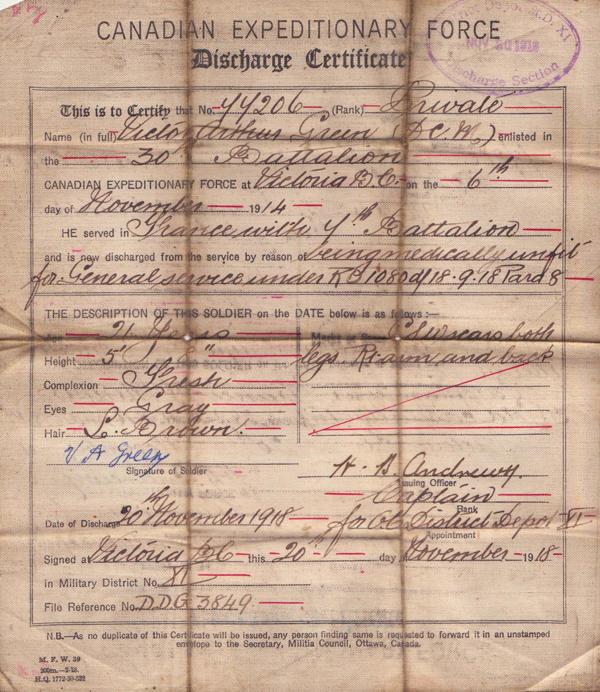 CANADIAN EXPEDITIONARY FORCE
Discharge Certificate
Dist. Depot M.D. XI
NOV 20 1918
Discharge Section
This is to Certify that No. 77206 (Rank) Private
Name (in full) Victor Arthur Green (D.C.M.) enlisted in
the 30th Battalion
CANADIAN EXPEDITIONARY FORCE at Victoria B.C. on the 6th
day of November 1914
HE served in France with 7th Battalion
and is now discharged from the service by reason of being medically unfit
for General service under RO 1080 d/18.9.18 Para 8
THE DESCRIPTION OF THIS SOLDIER on the DATE below is as follows :—
Age 21 Years
Height 5' 8"
Complexion Fresh
Eyes Gray
Hair L. Brown.
Marks or Scars GSW scars both
legs. Rt arm and back
V A Green
Signature of Soldier
H. B. Andrews.
Issuing Officer
Captain
Rank
Date of Discharge 20th November 1918
for OC District Depot XI
Appointment
Signed at Victoria BC this 20th day November 1918
in Military District No. XI
File Reference No. DDG 3849.
N.B.—As no duplicate of this Certificate will be issued, any person finding same is requested to forward it in an unstamped
envelope to the Secretary, Militia Council, Ottawa, Canada.
M. F. W. 39
H.Q. 1772-39-822